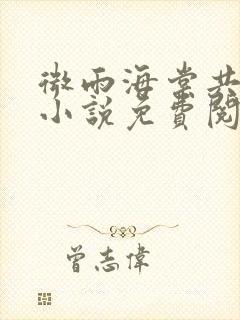 微雨海棠共
小説免費閱
曾志偉